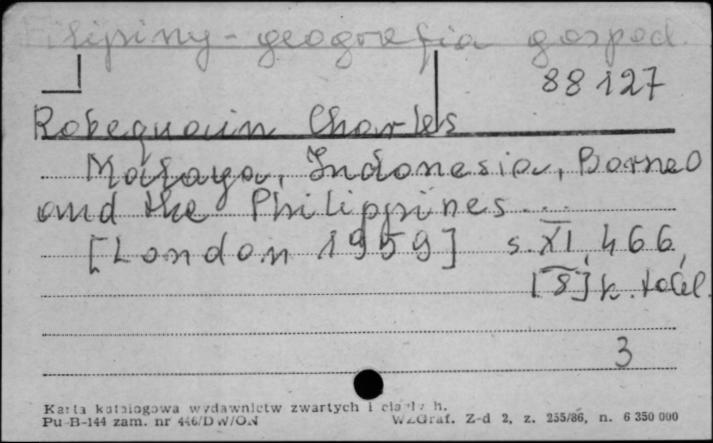 Filipiny - geografia gospod.
88 127
Robequain Charles
Malaya, Indonesia, Borneo
and the Philippines...
[London 1959] s. XI, 466,
[8] k. tabl.
3
Karta katalogowa wydawnictw zwartych i ciągłych.
Pu-B-144 zam. nr 446/DW/ON WZGraf. Z-d 2, z. 255/86, n. 6 350 000